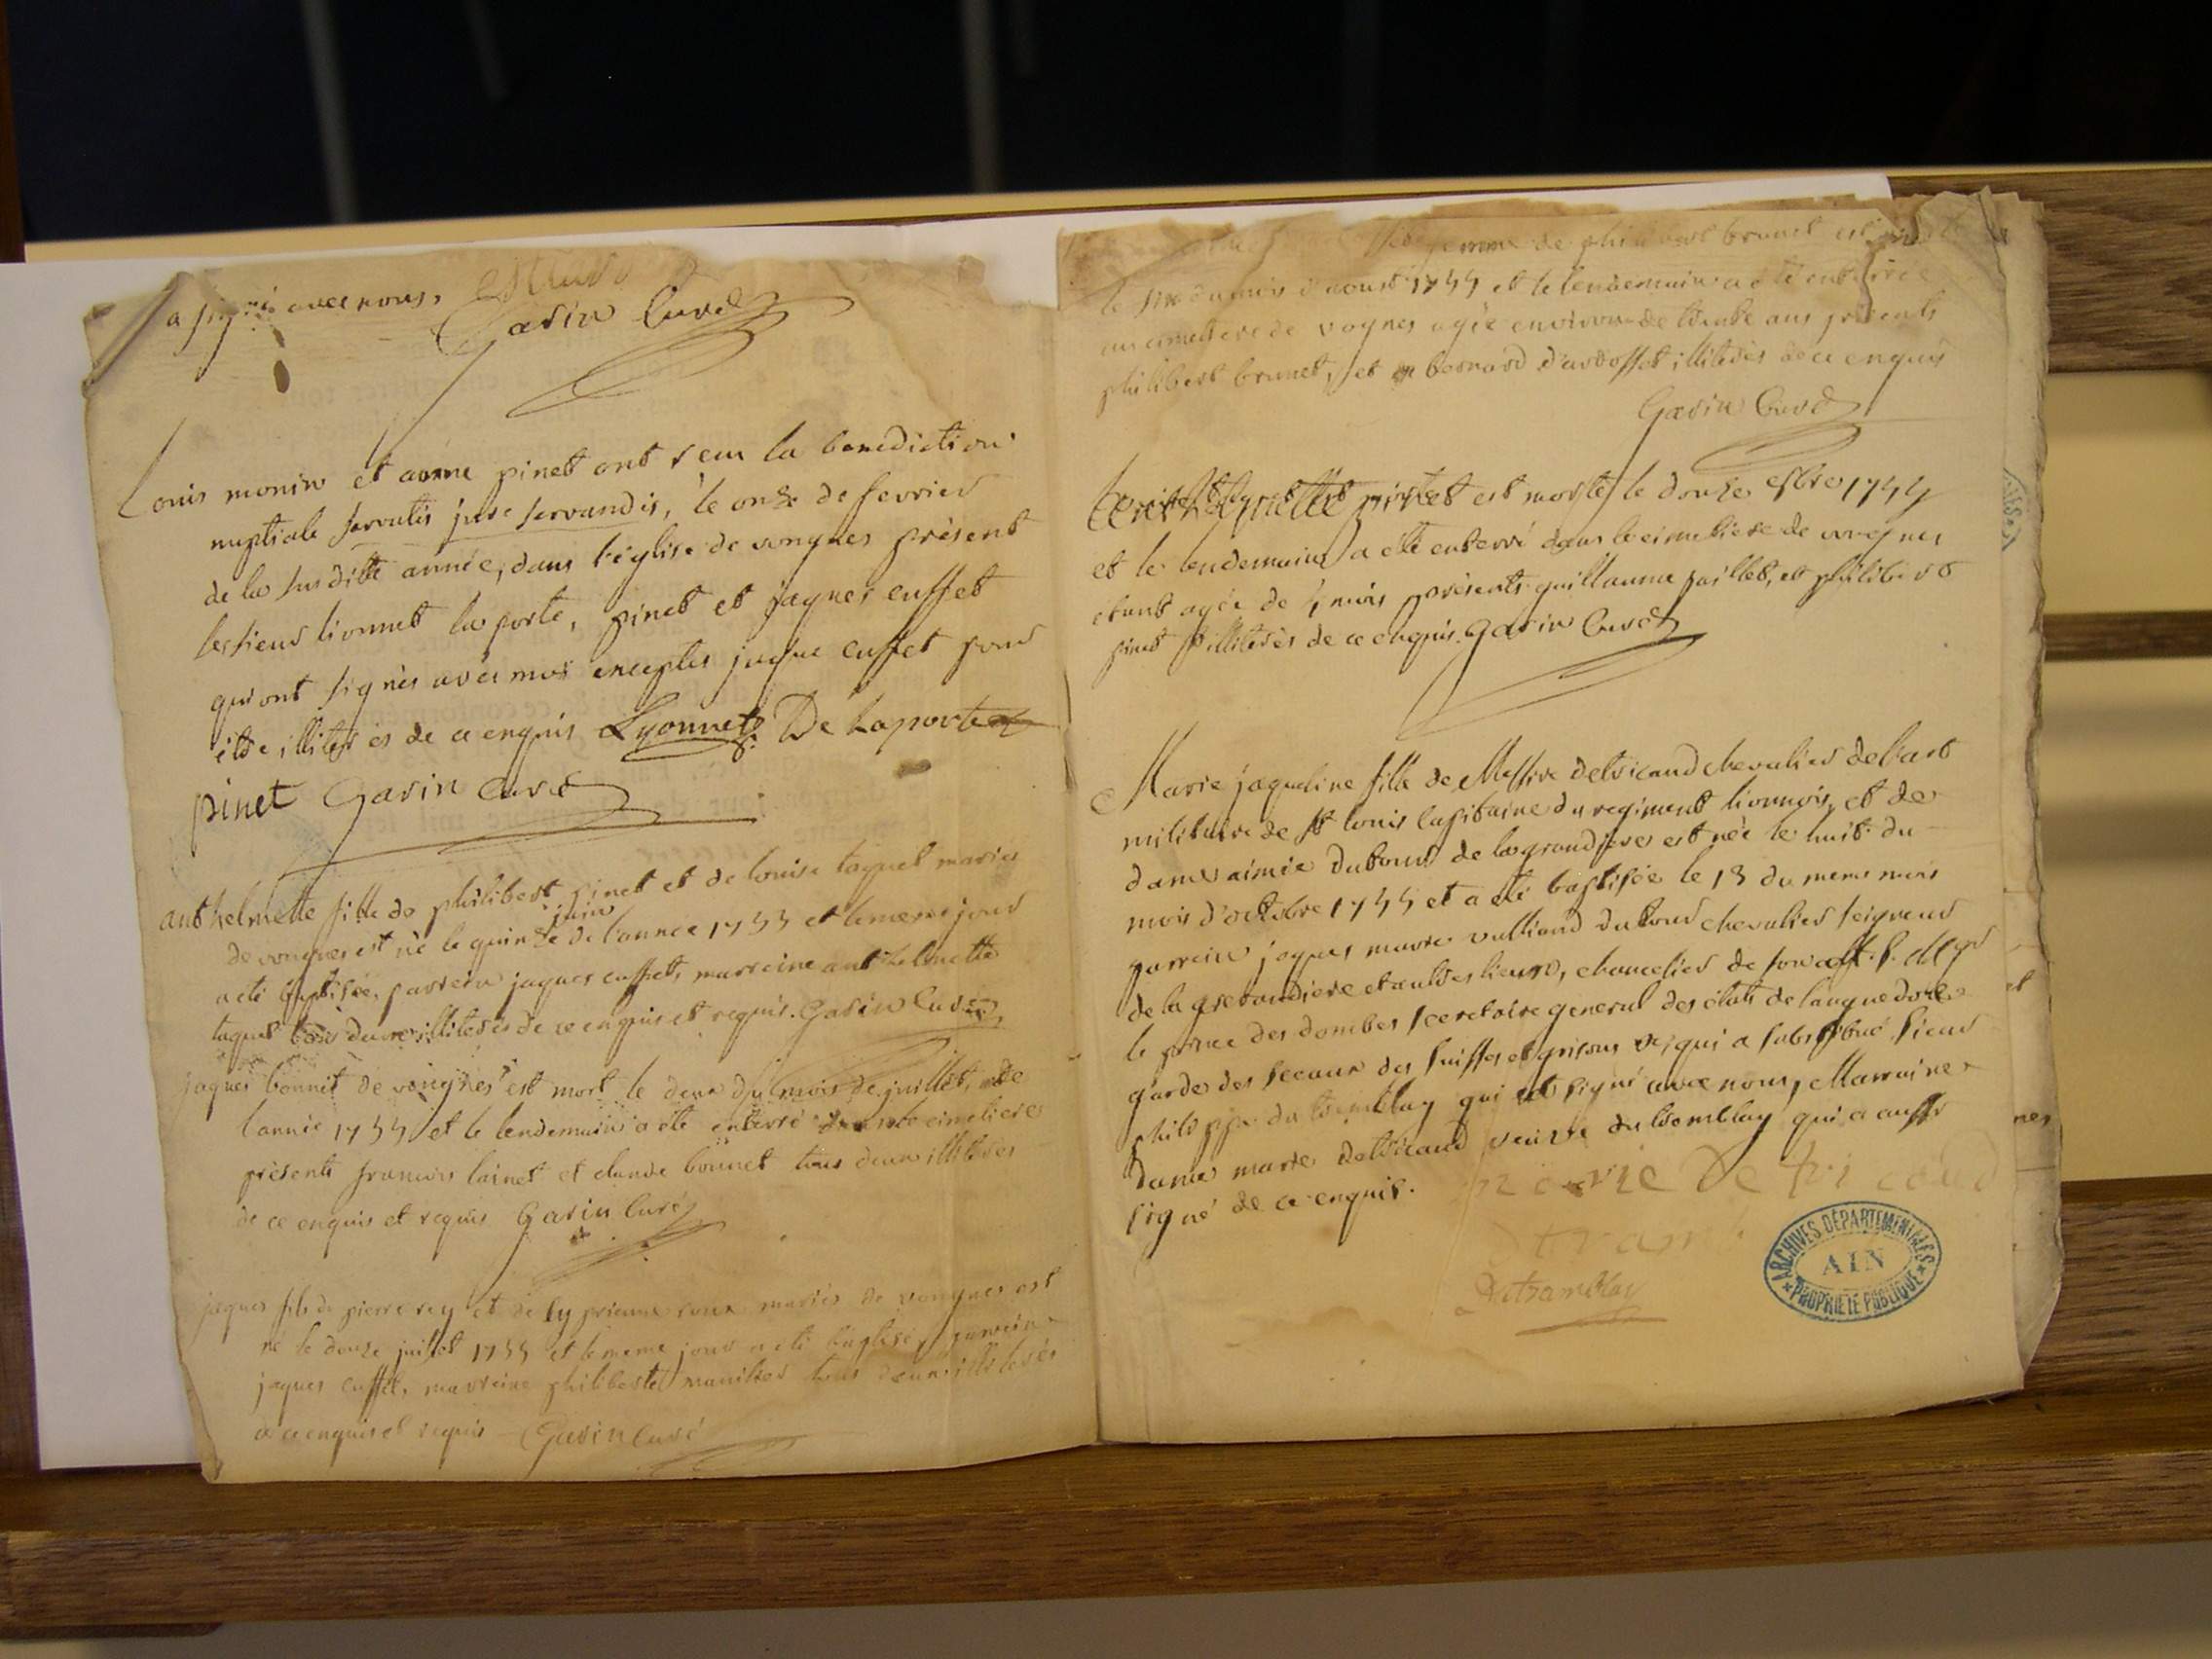 a signé avec nous,
Garin Curé
Louis monin et anne pinet ont reçu la benediction
nuptiale servatis jure servandis, le onze de fevrier
de la susditte année, dans l'église de vongnes présent
les sieurs lionnet laporte, pinet et jaques cuffet
qui ont signés avec moi exceptés jaque cuffet pour
être illiterés de ce enquis Lyonnet De Laporte
pinet Garin Curé
anthelmette fille de philibert pinet et de louise taquet mariés
juin
de vongnes est né le quinze de l'année 1755 et le meme jour
a eté baptisée, parrein jaques cuffet, marreine anthelmette
taquet tous deux illiterés de ce enquis et requis. Garin Curé
jaques bonnet de vongnes est mort le deux du mois de juillet, de
l'année 1755 et le lendemain a eté enterré dans le cimetiere
présents francois lainet et claude bonnet tous deux illiteres
de ce enquis et requis Garin Curé
jaques fils de pierre rey et de cyprienne roux mariés de vongnes est
né le douze juillet 1755 et le meme jour a eté baptisé, parrein
jaques cuffet, marreine philiberte tous deux illiterés
de ce enquis et requis Garin Curé
femme de philibert brunet est morte
le du mois d'aoust 1755 et le lendemain a eté enterrée
au cimetiere de vognes agée environ de trente ans présents
philibert brunet, et bernard d'ardosset illiterés de ce enquis
Garin Curé
pinet est morte le douze 1755
et le lendemain a eté enterré dans le cimetiere de vongnes
etant agée de mois présents guillaume paillet, et philibert
pinet illiterés de ce enquis. Garin Curé
Marie jaqueline fille de Messire detricaud chevalier de l'art
militaire de St louis capitaine du regiment lionnois, et de
dame aimée dutour de lagrand est née le huit du
mois d'octobre 1755 et a eté baptisée le 13 du meme mois
parrein jaques marie vulliaud dutour chevalier seigneur
de la et autres lieux, chancelier de son
le prince des dombes secretaire general des états de languedoc
garde des sceaux des suisses et grisons qui a substitué sieur
philippe du tremblay qui a signé avec nous, Marraine
Dame marie detricaud veuve du tremblay qui a aussi
signé de ce enquis.
marie De tricaud
Dutramblay
ARCHIVES DÉPARTEMENTALES
AIN
PROPRIÉTÉ PUBLIQUE
et
nes